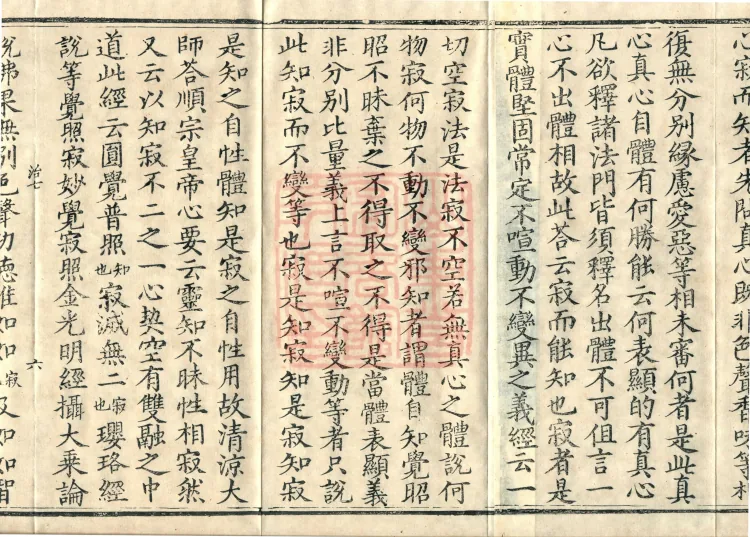 心寂而知者先陷真心既非色聲香味等相
復無分別緣慮愛惡等相未審何者是此真
心真心自體有何勝能云何表顯的有真心
凡欲釋諸法門皆須釋名出體不可但言一
心不出體相故此荅云寂而能知也寂者是
實體堅固常定不喧動不變異之義經云一
切空寂法是法寂不空若無真心之體說何
物寂何物不動不變邪知者謂體自知覺昭
昭不昧棄之不得取之不得是當體表顯義
非分別比量義上言不喧不變動等者只說
此知寂而不變等也寂是知寂知是寂知寂
是知之自性體知是寂之自性用故清涼大
師荅順宗皇帝心要云靈知不昧性相寂然
又云以知寂不二之一心契空有雙融之中
道此經云圓覺普照知也寂滅無二寂也瓔珞經
說等覺照寂妙覺寂照金光明經攝大乘論
治七
六
說佛果無別色聲功德惟如如寂及如如智